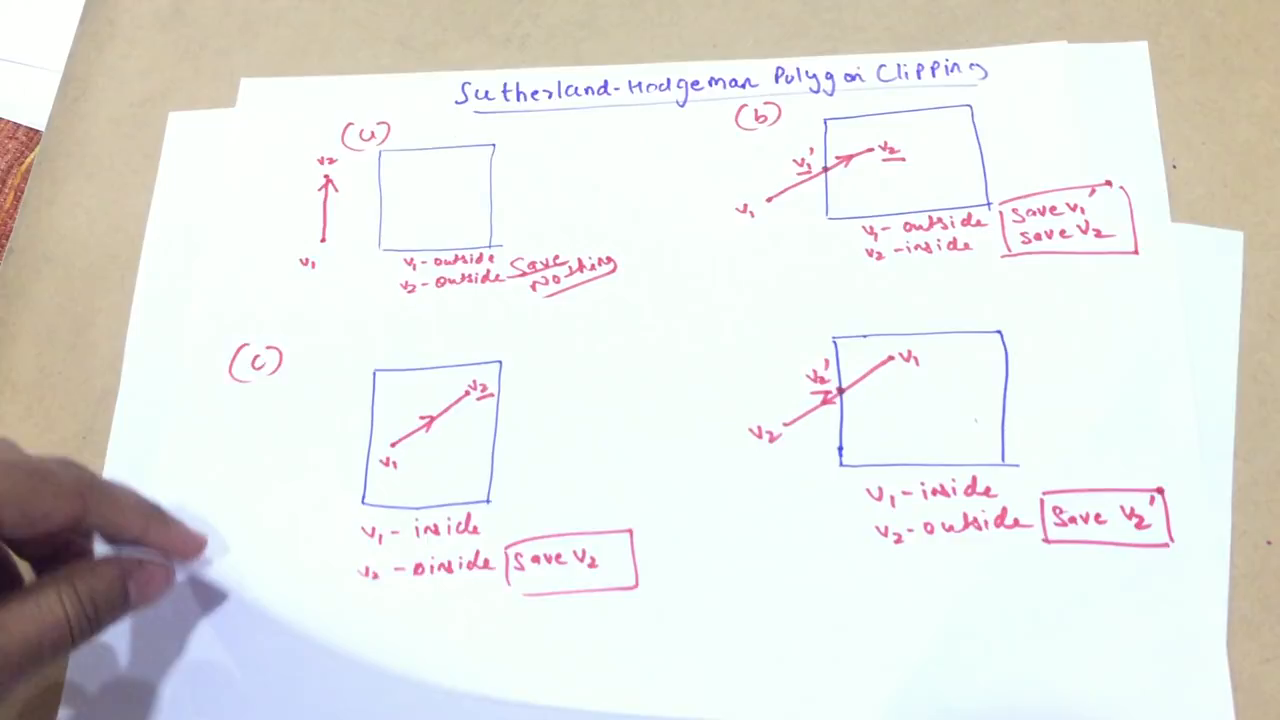 Sutherland-Hodgeman Polygon Clipping
(a)
v2
v1
v1-outside
v2-outside Save
Nothing
(b)
v1'
v2
v1
v1-outside
v2-inside
Save v1'
Save v2
(c)
v2
v1
v1-inside
v2-inside
Save v2
v1
v2'
v2
v1-inside
v2-outside
Save v2'